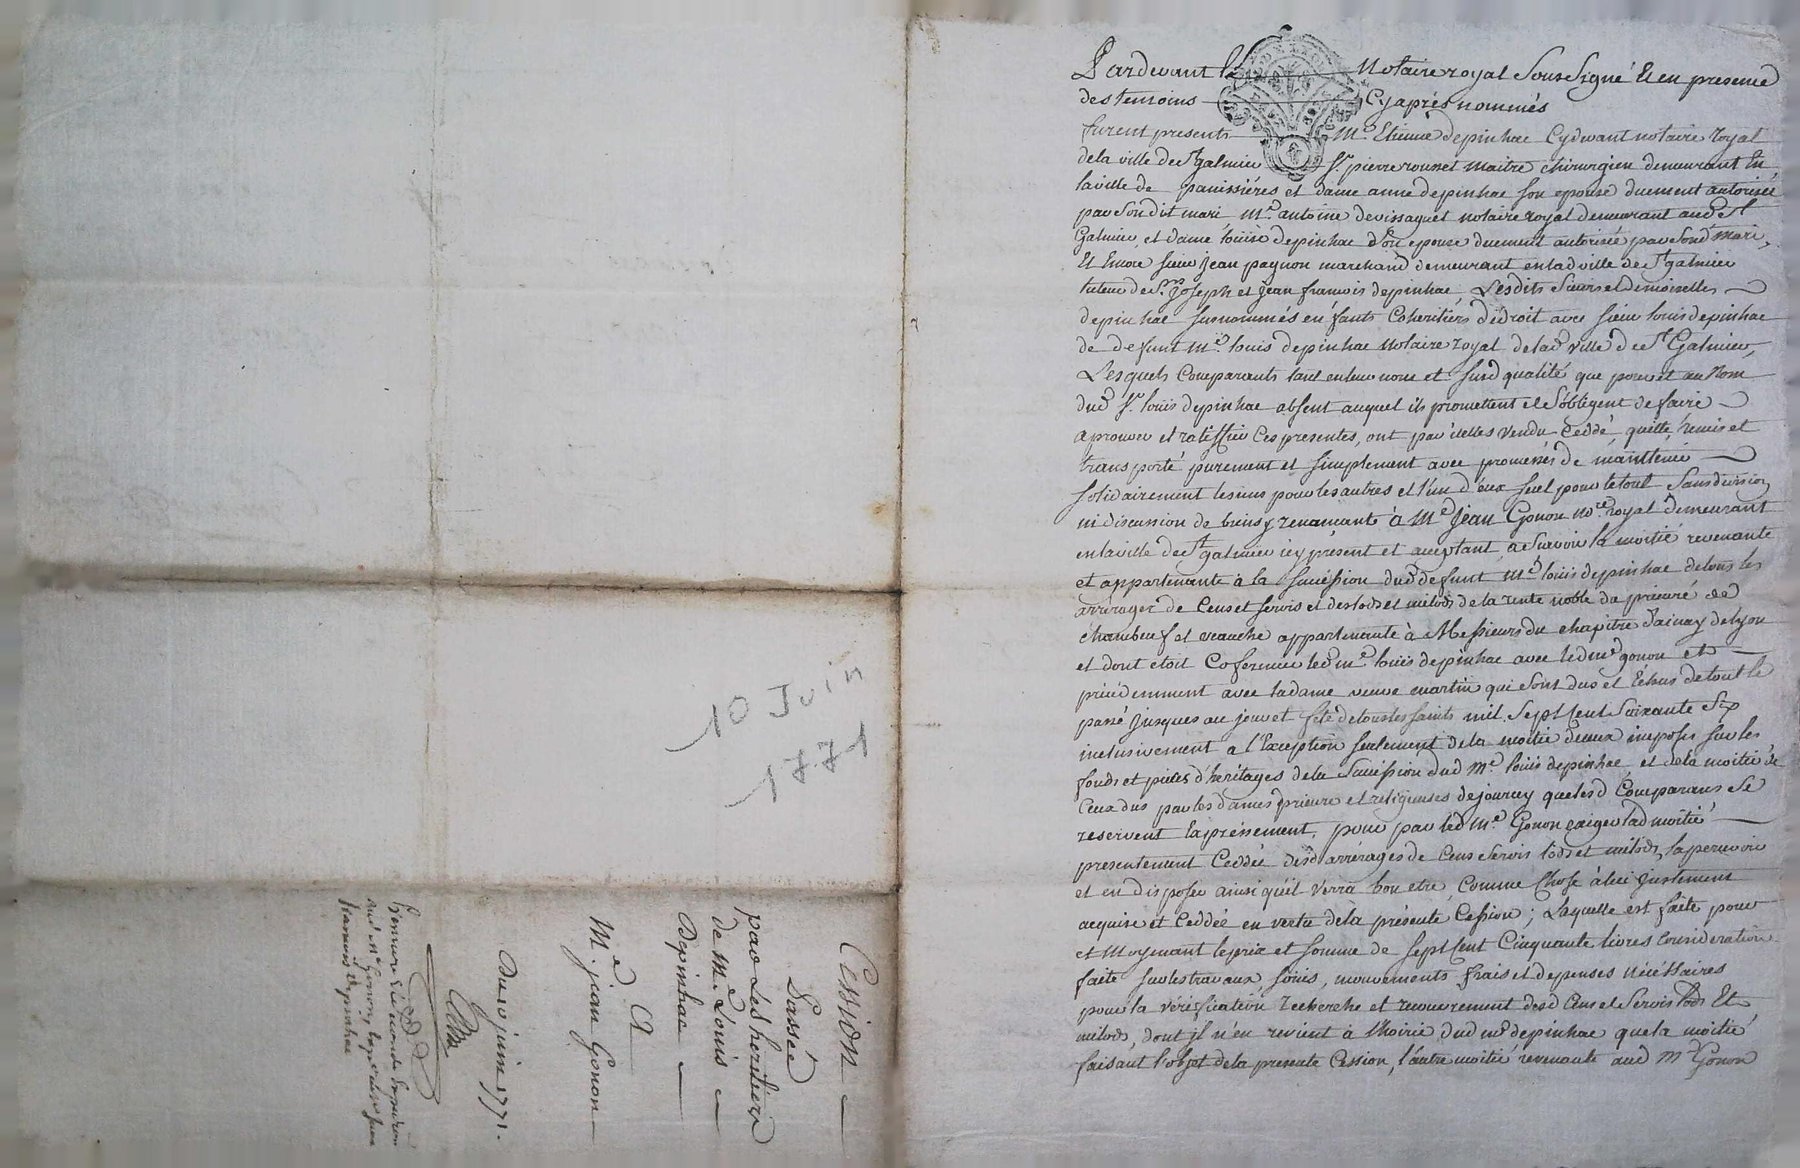 Pardevant le Notaire royal Soussigné Et en presence
des temoins Cy après nommés
furent presents Me. Etienne depinhac Cydevant notaire royal
de la ville de St galmier Sr. pierre rousset maitre chirurgien demeurant En
la ville de panissiéres et dame anne depinhac son epouse duement autorisée
par Son dit mari Me. antoine devissaguet notaire royal demeurant aud St
Galmier et dame loüise depinhac Son epouse duement autorisée par Sond mari,
Et Encore sieur Jean pagnon marchand demeurant en lad ville de St galmier
tuteur de Srs Joseph et Jean francois depinhac Lesdits Sieurs et Demoiselles
depinhac susnommés enfants Coheritiers de droit avec sieur louis depinhac
de defunt Me. louis depinhac Notaire royal de lad ville de St Galmier,
Lesquels Comparants tant en leur nom et susd qualité que pour et au Nom
dud Sr. loüis depinhac absent auquel ils promettent et S'obligent de faire
aprouver et ratiffier Ces presentes, ont par icelles vendu Ceddé quitté, remis et
transporté purement et simplement avec promesses de maintenir
solidairement les uns pour les autres et l'un d'eux seul pour le tout Sans division
ni discussion de biens y renoncants à Me Jean Gonon nore. royal demeurant
en la ville de St galmier icy présent et aceptant, a Scavoir la moitié revenante
et appartenante à la succéssion dud defunt Me. loüis depinhac de tous les
arrérages de Cens et servis et des lods et milods de la rente noble du prieuré de
chambeuf et veauche appartenante à Messieurs du chapitre d'ainay de lyon
et dont etoit Cofermier led me. loüis depinhac avec led me gonon et
précédemment avec la dame veuve martin qui sont dus et Echus de tout le
passé Jusques au jour et fête de tous les saints mil Sept Cent Soixante Dix
inclusivement a l'Exception seulement de la moitié de ceux imposés sur les
fonds et pieces d'heritages de la Succéssion dud Me. loüis depinhac, et de la moitié de
Ceux dus par les dames prieure et religieuses de jourcey que lesd Comparans Se
reservent Expréssement, pour par led Me. Gonon exiger lad moitié
presentement Ceddée desd arrérages de Cens Servis lods et milods, la percevoir
et en disposer ainsi qu'il verra bon etre Comme Chose à lui Justement
acquise et Ceddée en vertu de la présente Cession; Laquelle est faite pour
et Moyenant le prix et somme de sept Cent Cinquante livres Consideration
faite sur les travaux soins, mouvements frais et depenses nécéssaires
pour la vérification recherche et recouvrement desd Cens et Servis lods Et
milods, dont il n'en revient à l'hoirie dud me depinhac que la moitié
faisant l'objet de la presente Cession, l'autre moitié revenante aud Me Gonon
10 Juin
1771
Cession
Passée
par Les heritiers
de Me. Louis
Depinhac
A
Me. jean Gonon
Du 10 juin 1771.